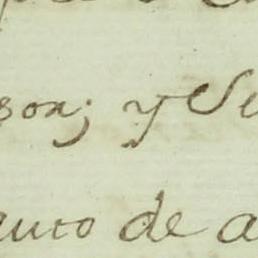 son; y Se
auto de a